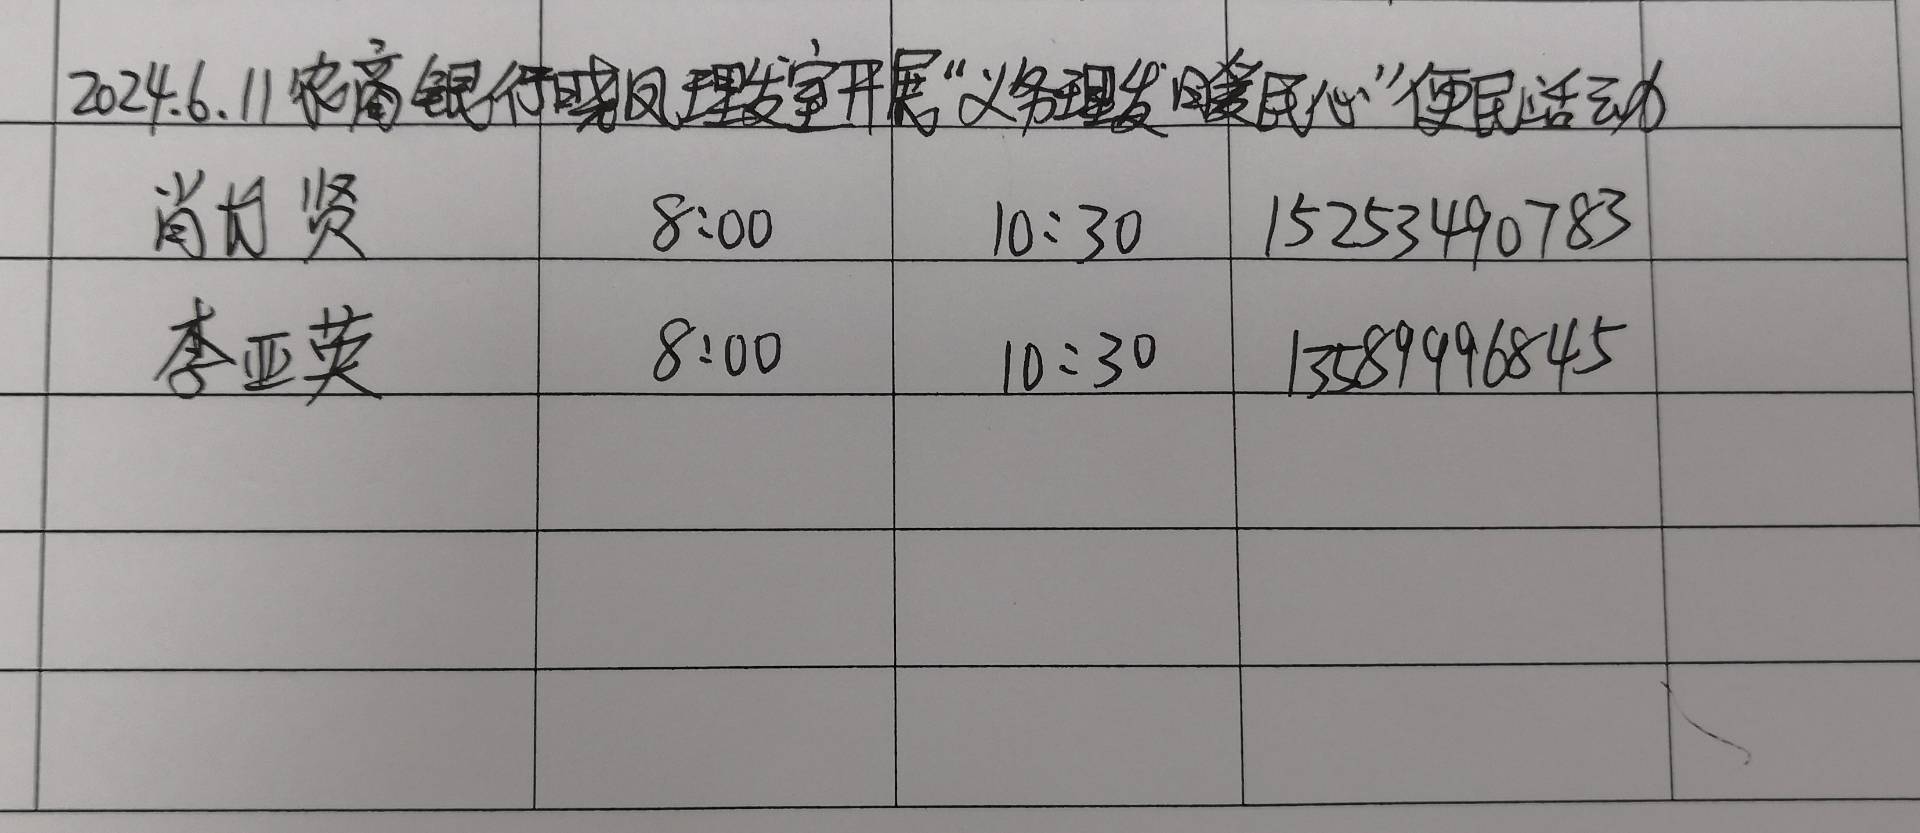 2024.6.11农商银行晓风理发室开展“义务理发 暖民心”便民活动
肖付贤 8:00 10:30 15253490783
李亚英 8:00 10:30 13589996845